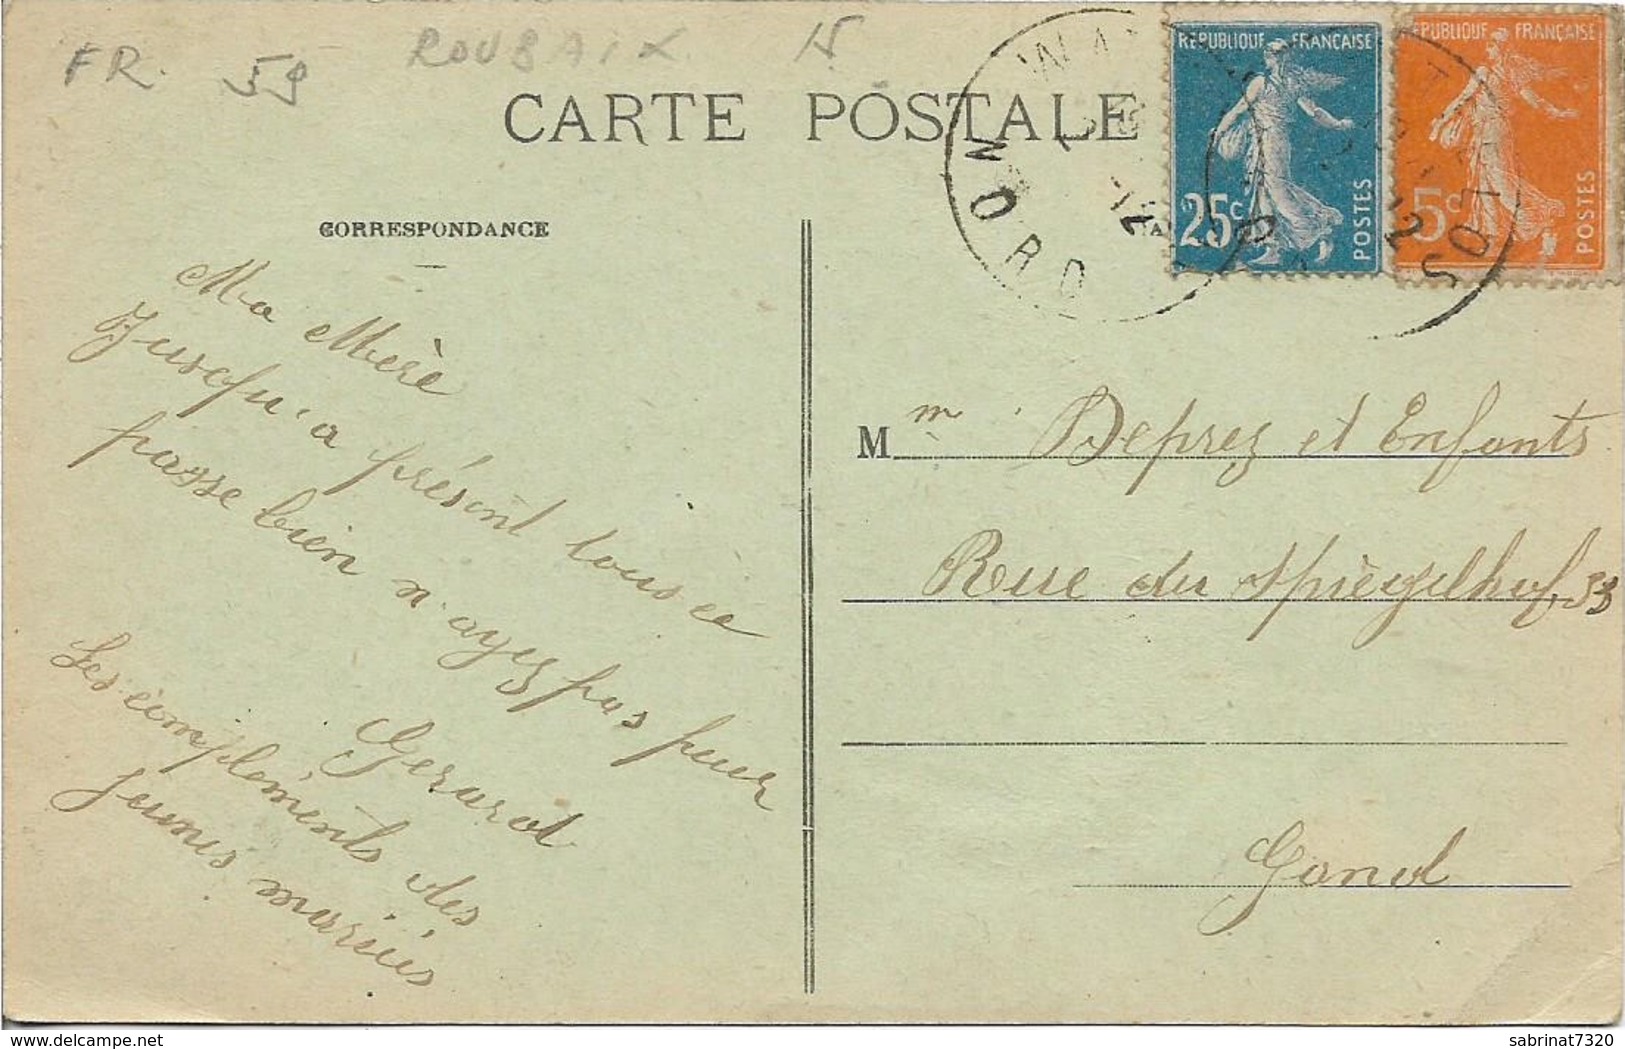 FR. 59 ROUBAIX 15
CARTE POSTALE
CORRESPONDANCE
REPUBLIQUE FRANÇAISE
25c
POSTES
REPUBLIQUE FRANÇAISE
5c
POSTES
NORD
Ma Mère
Jusqu'a présent tous ce
passe bien n'ayez pas peur
Gerard
Les compléments des
Jeunes mariés
M m Deprez et Enfants
Rue du Spiègelhof 33
Gand
sabrinat7320